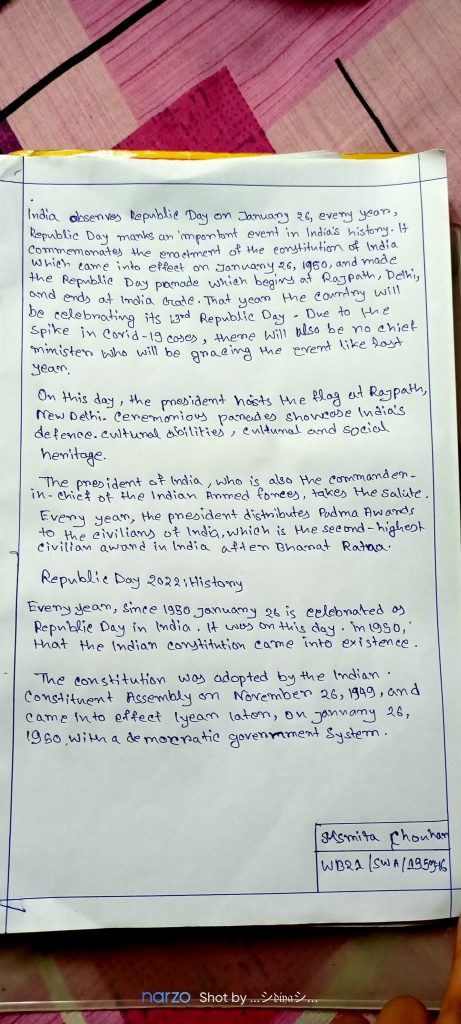 India observes Republic Day on January 26, every year,
Republic Day marks an important event in India's history. It
commemorates the enactment of the constitution of India
which came into effect on January 26, 1950, and made
the Republic Day parade which begins at Rajpath, Delhi,
and ends at India Gate. That year the country will
be celebrating its 73rd Republic Day. Due to the
spike in Covid-19 cases, there will also be no chief
minister who will be gracing the event like last
year.
On this day, the president hosts the flag at Rajpath,
New Delhi. Ceremonious parades showcase India's
defence. cultural abilities, cultural and social
heritage.
The president of India, who is also the commander-
in-chief of the Indian Armed forces, takes the salute.
Every year, the president distributes Padma Awards
to the civilians of India, which is the second-highest
civilian award in India after Bharat Ratna.
Republic Day 2022: History
Every year, since 1950 January 26 is celebrated as
Republic Day in India. It was on this day. in 1950,
that the Indian constitution came into existence.
The constitution was adopted by the Indian.
Constituent Assembly on November 26, 1949, and
came into effect 1year later, on january 26,
1950, with a democratic government system.
Asmita Chouhan
WB21/SWA/195946
narzo Shot by ...シbinaシ...